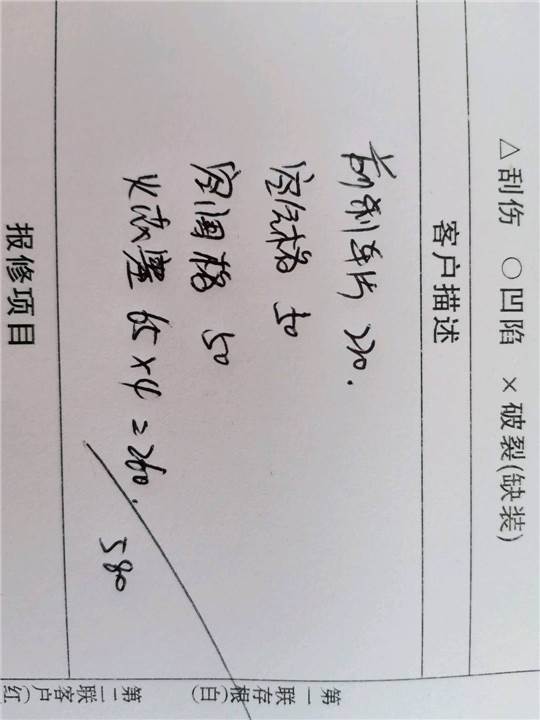 △刮伤 ○凹陷 ×破裂(缺装)
客户描述
前刹车片 220.
空气格 50
空调格 50
火花塞 65×4=260.
580
报修项目
第一联存根(白)
第二联客户(红